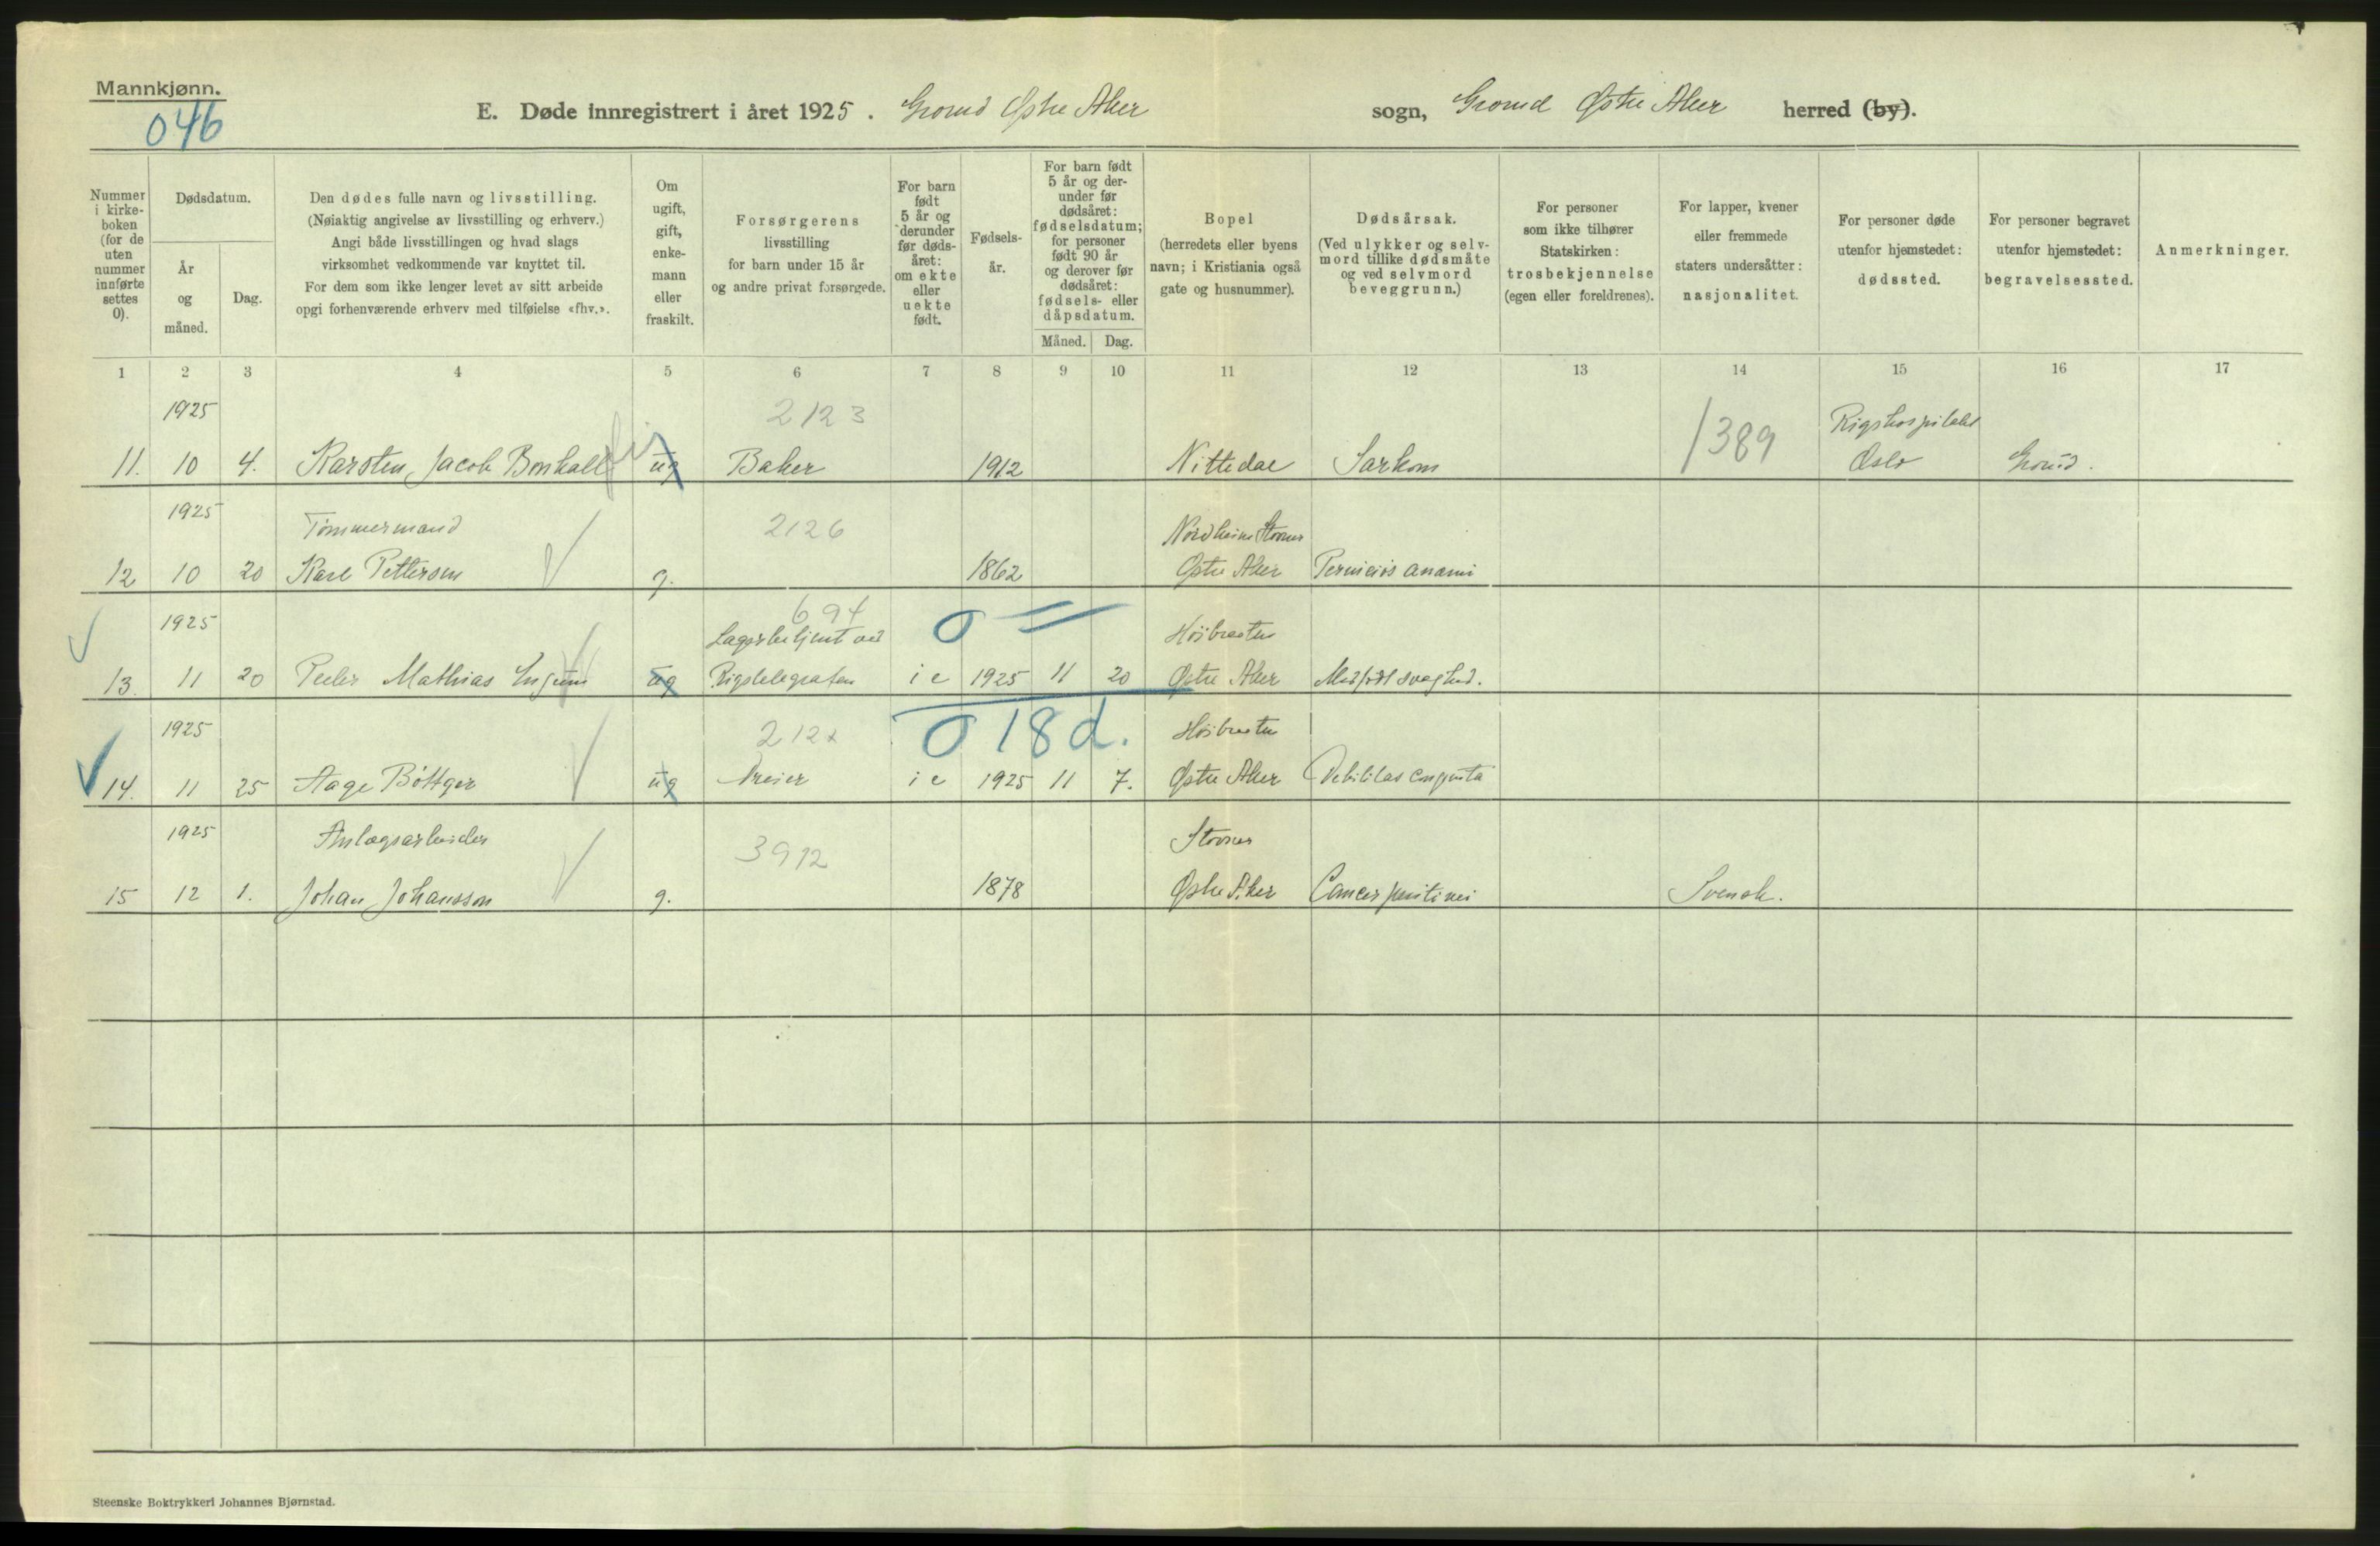 Mannkjønn.
046
E. Døde innregistrert i året 1925. Grorud Østre Aker sogn, Grorud Østre Aker herred (by).
Nummer i kirkeboken (for de uten nummer innførte settes 0).
Dødsdatum.
År og måned.
Dag.
Den dødes fulle navn og livsstilling.
(Nøiaktig angivelse av livsstilling og erhverv.)
Angi både livsstillingen og hvad slags
virksomhet vedkommende var knyttet til.
For dem som ikke lenger levet av sitt arbeide
opgi forhenværende erhverv med tilføielse «fhv.».
Om ugift, gift, enkemann eller fraskilt.
Forsørgerens
livsstilling
for barn under 15 år
og andre privat forsørgede.
For barn født 5 år og derunder før dødsåret: om ekte eller uekte født.
Fødselsår.
For barn født 5 år og derunder før dødsåret: fødselsdatum; for personer født 90 år og derover før dødsåret: fødsels- eller dåpsdatum.
Måned. Dag.
Bopel
(herredets eller byens
navn; i Kristiania også
gate og husnummer).
Dødsårsak.
(Ved ulykker og selvmord tillike dødsmåte og ved selvmord beveggrunn.)
For personer
som ikke tilhører
Statskirken:
trosbekjennelse
(egen eller foreldrenes).
For lapper, kvener
eller fremmede
staters undersåtter:
nasjonalitet.
For personer døde
utenfor hjemstedet:
dødssted.
For personer begravet
utenfor hjemstedet:
begravelsessted.
Anmerkninger.
1 2 3 4 5 6 7 8 9 10 11 12 13 14 15 16 17
1925 2123 1389 Rigshospitalet
11. 10 4. Karsten Jacob Bonkall ug Baker 1912 Nittedal Sarkom Oslo Grorud.
1925 Tømmermand 2126 Nordheim Stovner
12 10 20 Karl Petterson g. 1862 Østre Aker Perniciøs anæmi
1925 694 Lagerbetjent ved 0 Høibraaten
13. 11 20 Peder Mathias ug Rigstelegrafen i e 1925 11 20 Østre Aker Medfødt svaghed.
1925 212 0 18 d. Høibraaten
14. 11 25 Aage Böttger ug Dreier i e 1925 11 7. Østre Aker Debilitas congenita
1925 Anlægsarbeider 3912 Stovner
15 12 1. Johan Johansson g. 1878 Østre Aker Cancer Svensk.
Steenske Boktrykkeri Johannes Bjørnstad.